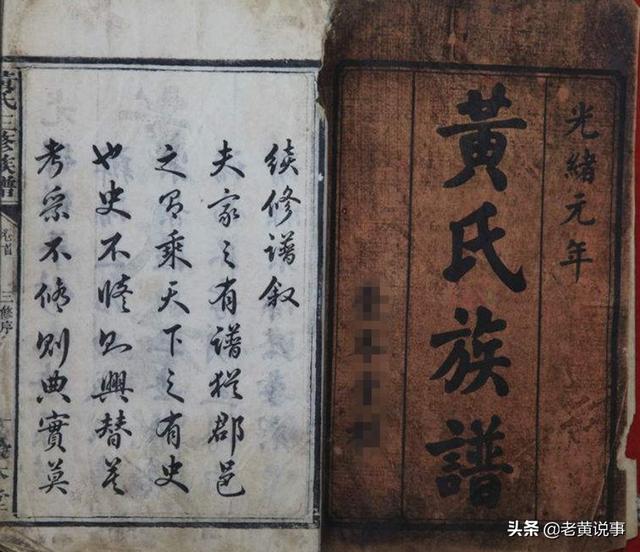 光緒元年
黃氏族譜
續修譜叙
夫家之有譜猶郡邑
之有乘天下之有史
也史不脩則興替莫
考乘不脩則典實莫
氏三修族譜
卷首
三修序
头条 @老黄说事